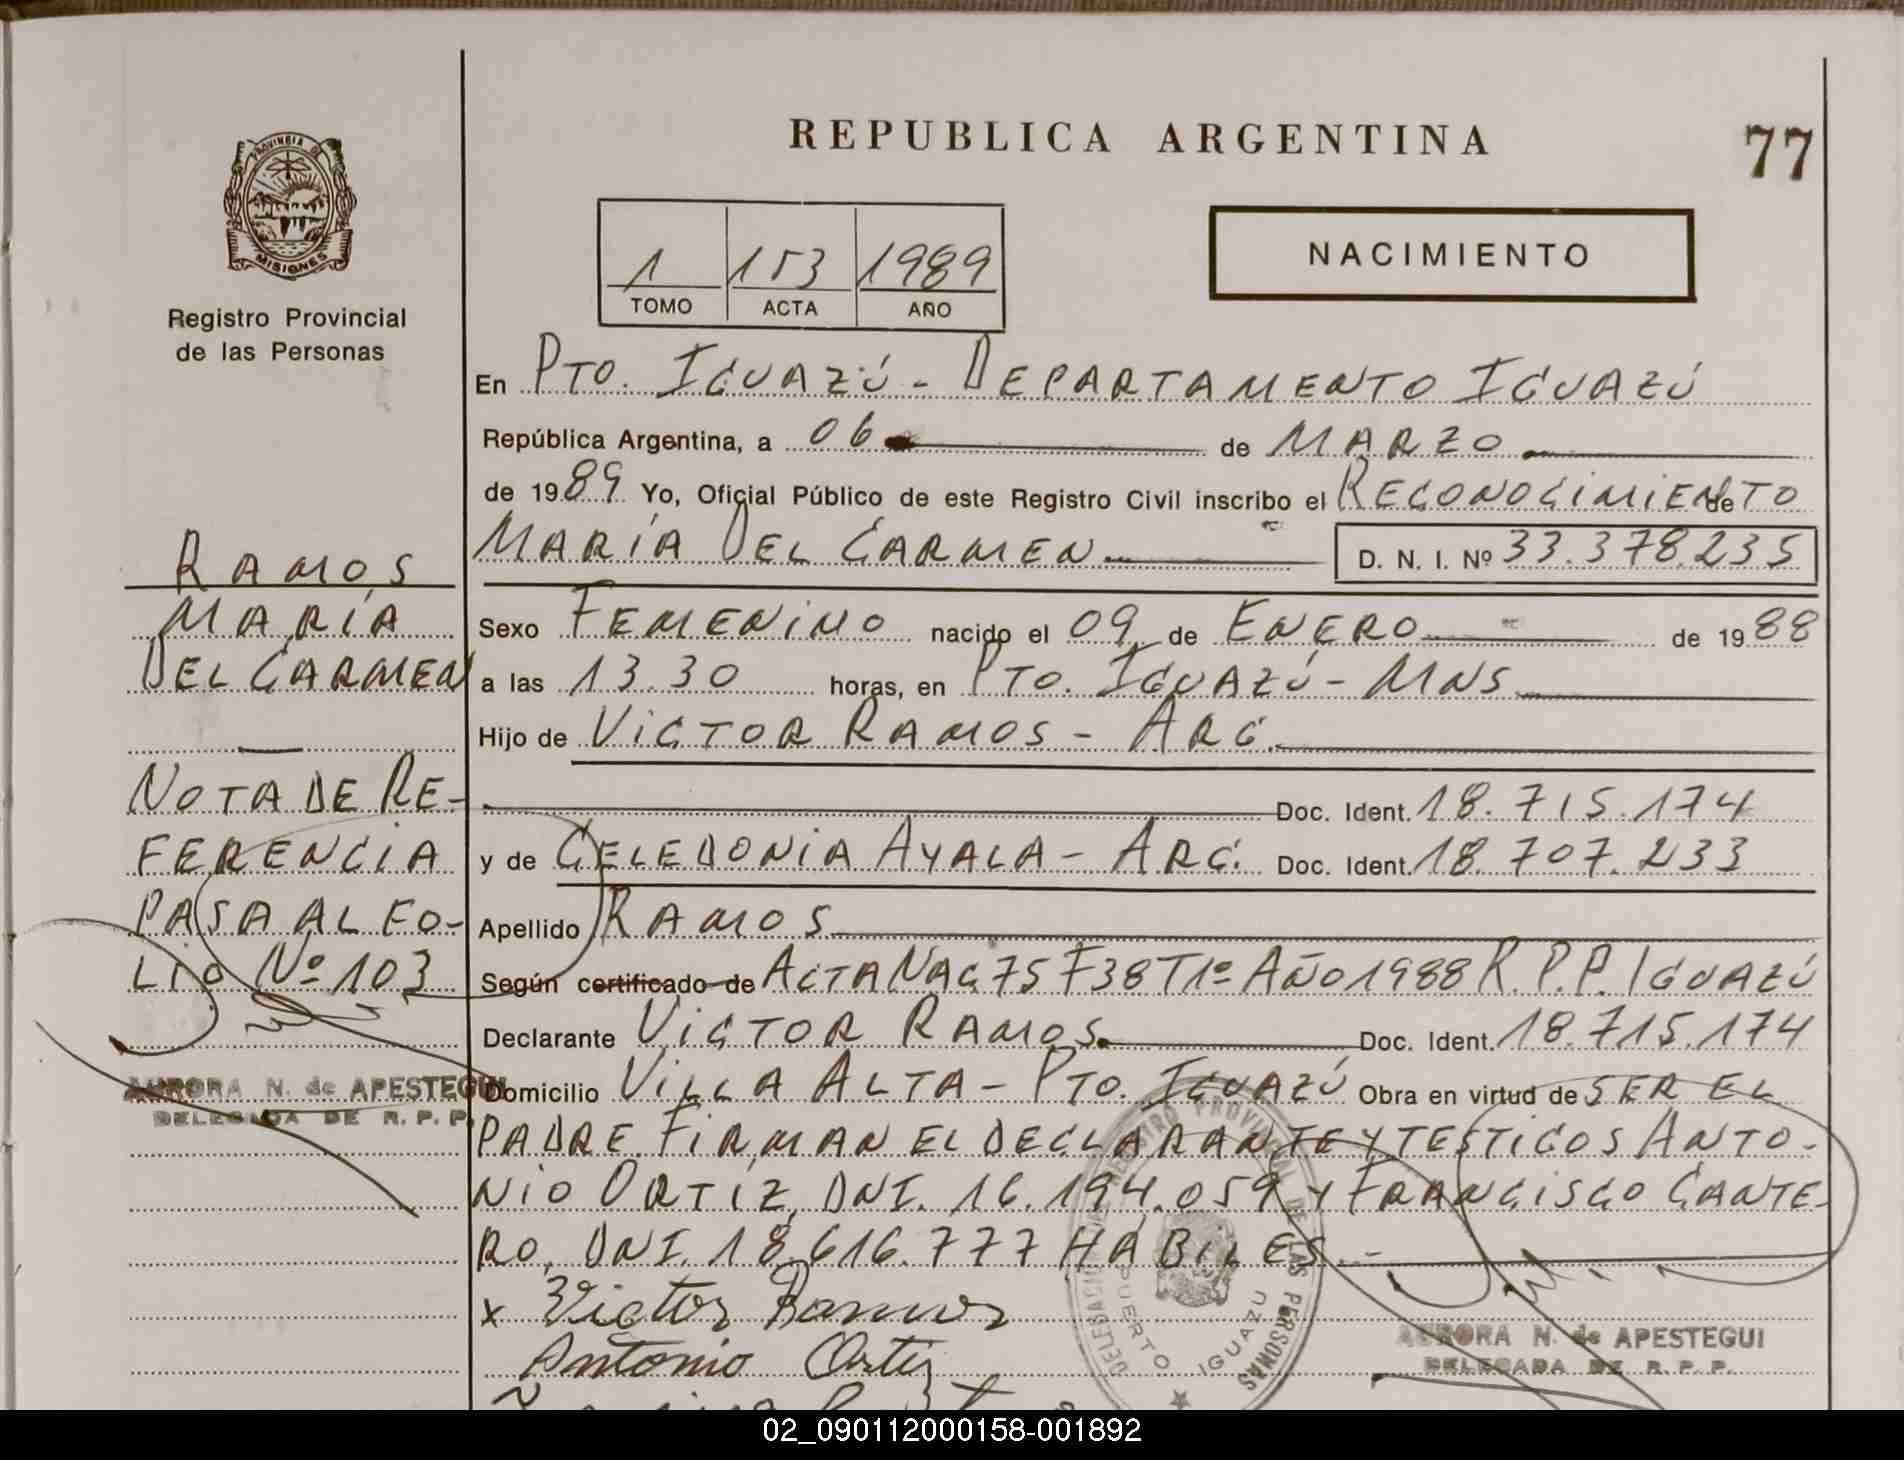 REPUBLICA ARGENTINA
77
PROVINCIA DE
MISIONES
Registro Provincial
de las Personas
1 153 1989
TOMO ACTA AÑO
NACIMIENTO
En PTO. IGUAZÚ - DEPARTAMENTO IGUAZÚ
República Argentina, a 06 de MARZO
de 1989 Yo, Oficial Público de este Registro Civil inscribo el RECONOCIMIENTO de
MARÍA DEL CARMEN D. N. I. Nº 33.378.235
Sexo FEMENINO nacido el 09 de ENERO de 1988
a las 13.30 horas, en PTO. IGUAZÚ - MNS
Hijo de VICTOR RAMOS - ARG.
Doc. Ident. 18.715.174
y de CELEDONIA AYALA - ARG. Doc. Ident. 18.707.233
Apellido RAMOS
Según certificado de ACTA NAC 75 F38 T1º AÑO 1988 R.P.P. IGUAZÚ
Declarante VICTOR RAMOS. Doc. Ident. 18.715.174
Domicilio VILLA ALTA - PTO. IGUAZÚ Obra en virtud de SER EL
PADRE. FIRMAN EL DECLARANTE Y TESTIGOS ANTO-
NIO ORTIZ, DNI. 16.194.059 Y FRANCISCO CANTE-
RO, DNI. 18.616.777 HABILES.-
x Victor Ramos
Antonio Ortiz
RAMOS
MARÍA
DEL CARMEN
NOTA DE RE-
FERENCIA
PASA AL FO-
LIO Nº 103
AURORA N. de APESTEGUI
DELEGADA DE R. P. P.
DELEGACION REGISTRO PROVINCIAL DE LAS PERSONAS
PUERTO IGUAZU
AURORA N. de APESTEGUI
DELEGADA DE R. P. P.
02_090112000158-001892